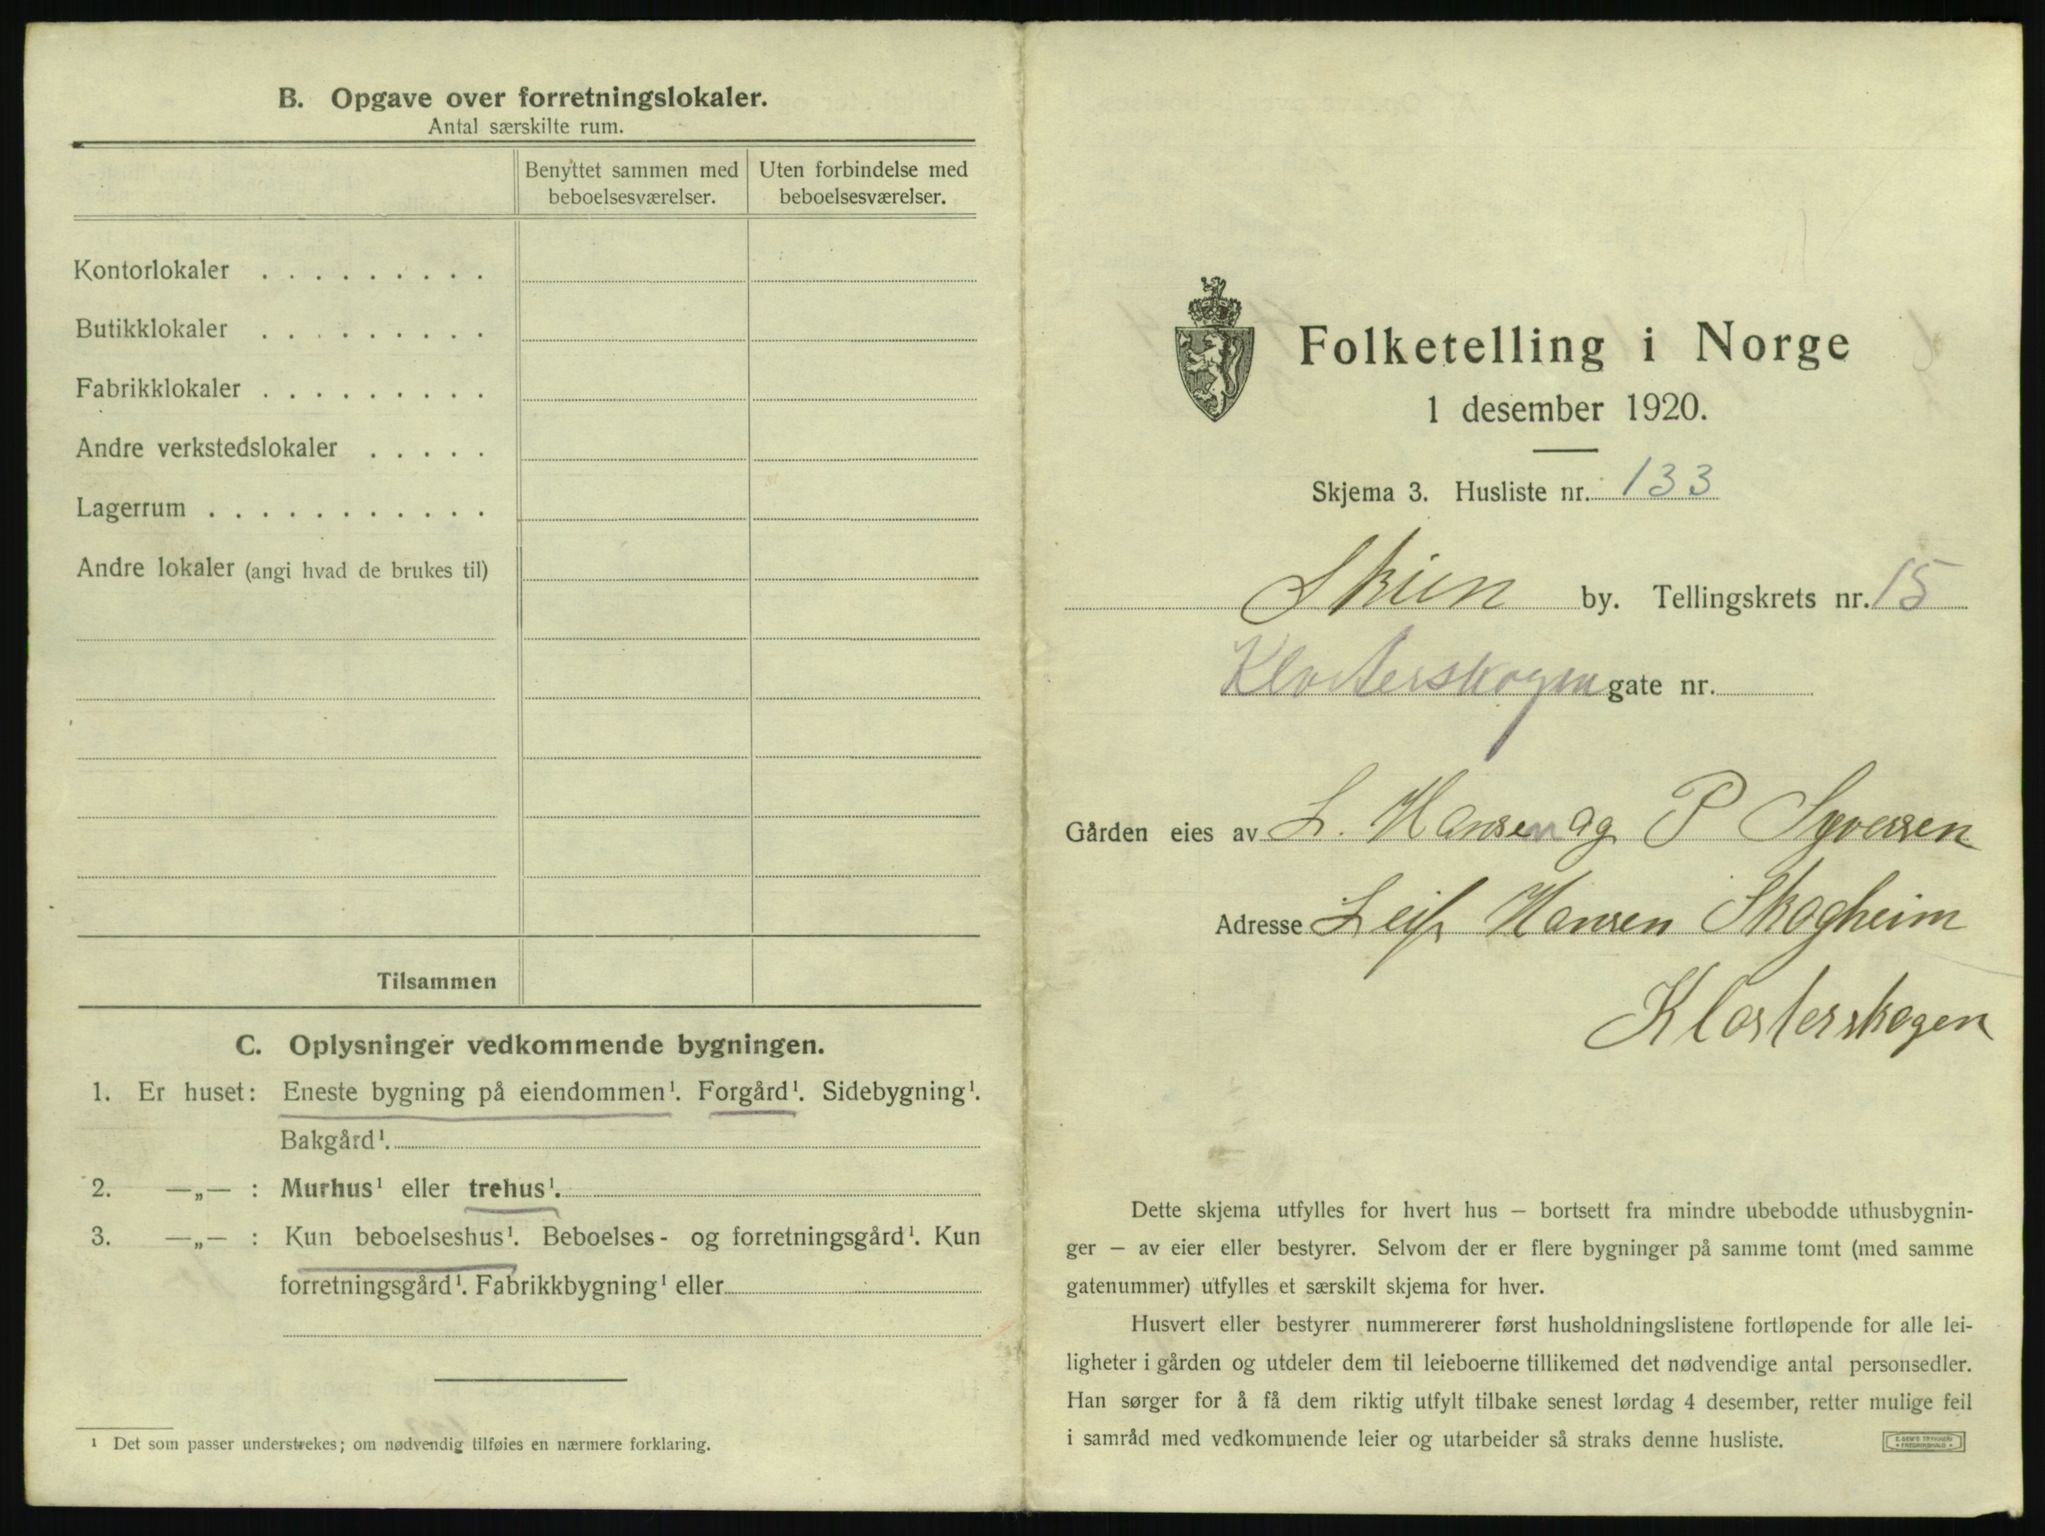 B. Opgave over forretningslokaler.
Antal særskilte rum.
Benyttet sammen med beboelsesværelser.
Uten forbindelse med beboelsesværelser.
Kontorlokaler . . . . . . . . .
Butikklokaler . . . . . . . . .
Fabrikklokaler . . . . . . . . .
Andre verkstedslokaler . . . . .
Lagerrum . . . . . . . . . . .
Andre lokaler (angi hvad de brukes til)
Tilsammen
C. Oplysninger vedkommende bygningen.
1. Er huset: Eneste bygning på eiendommen¹. Forgård¹. Sidebygning¹.
Bakgård¹.
2. —„— : Murhus¹ eller trehus¹.
3. —„— : Kun beboelseshus¹. Beboelses- og forretningsgård¹. Kun
forretningsgård¹. Fabrikkbygning¹ eller
¹ Det som passer understrekes; om nødvendig tilføies en nærmere forklaring.
Folketelling i Norge
1 desember 1920.
Skjema 3. Husliste nr. 133
Skien by. Tellingskrets nr. 15
Klosterskogen gate nr.
Gården eies av L. Hansen og P Syversen
Adresse Leif Hansen Skogheim
Klosterskogen
Dette skjema utfylles for hvert hus — bortsett fra mindre ubebodde uthusbygnin-
ger — av eier eller bestyrer. Selvom der er flere bygninger på samme tomt (med samme
gatenummer) utfylles et særskilt skjema for hver.
Husvert eller bestyrer nummererer først husholdningslistene fortløpende for alle lei-
ligheter i gården og utdeler dem til leieboerne tillikemed det nødvendige antal personsedler.
Han sørger for å få dem riktig utfylt tilbake senest lørdag 4 desember, retter mulige feil
i samråd med vedkommende leier og utarbeider så straks denne husliste.